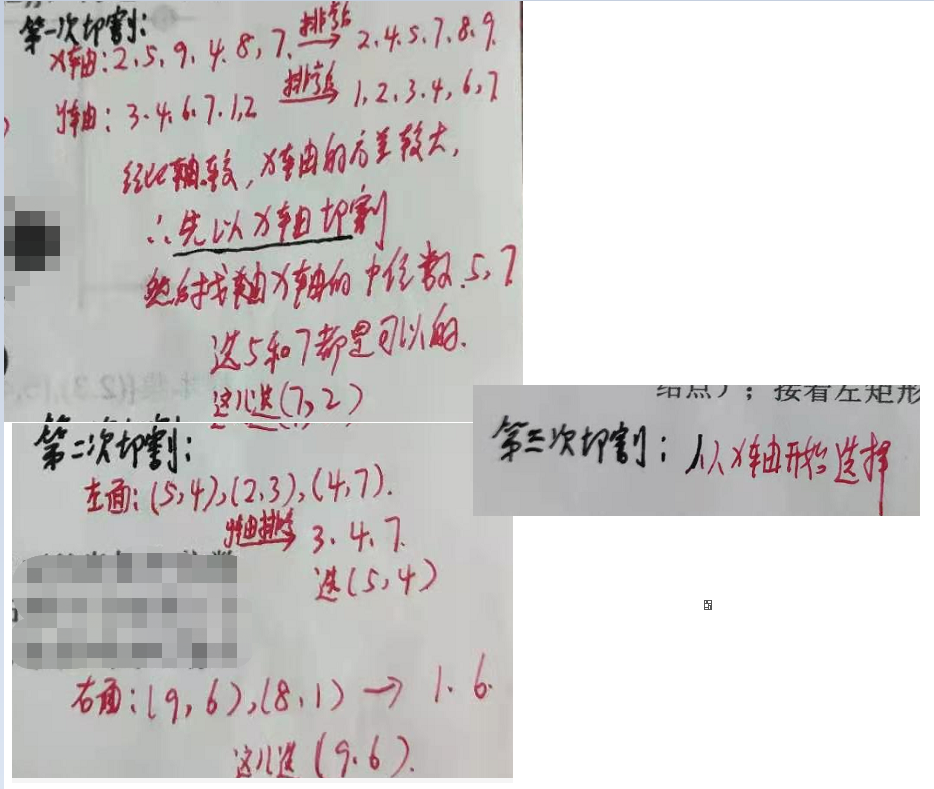 第一次切割:
x轴:2、5、9、4、8、7 排序→ 2、4、5、7、8、9
y轴:3、4、6、7、1、2 排序→ 1、2、3、4、6、7
经比较,x轴的方差较大,
∴先以x轴切割
然后找x轴的中位数、5、7
选5和7都是可以的.
这儿选(7,2)
第二次切割:
左面:(5,4),(2,3),(4,7).
y轴排序→ 3、4、7
选(5,4)
右面:(9,6),(8,1)→ 1、6.
这儿选(9、6).
结点);接着左矩形
第三次切割:从x轴开始选择